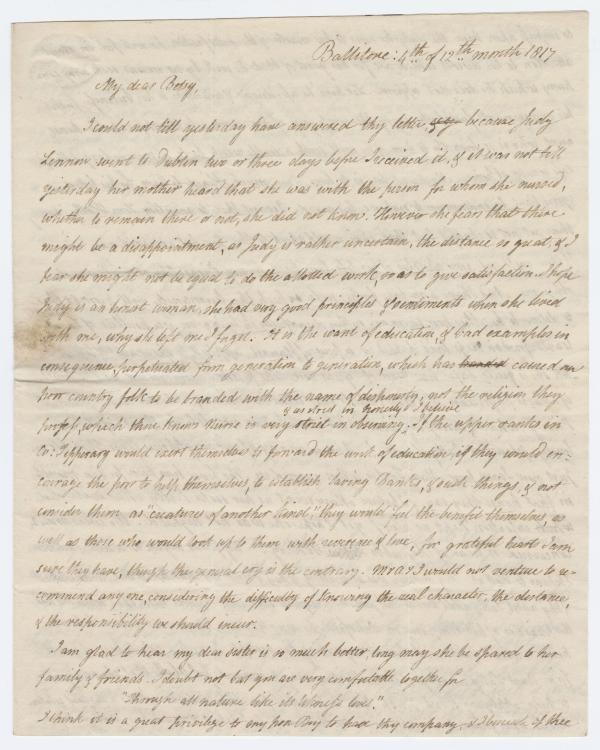 Ballitore: 4th of 12th month 1817
My dear Betsy,
I could not till yesterday have answered thy letter because Judy
Lennon went to Dublin two or three days before I received it, & it was not till
yesterday her mother heard that she was with the person for whom she nursed,
whether to remain there or not, she did not know. However she fears that there
might be a disappointment, as Judy is rather uncertain, the distance so great, & I
fear she might not be equal to do the allotted work, so as to give satisfaction. I hope
Judy is an honest woman, she had very good principles & sentiments when she lived
with me, why she left me I forget. It is the want of education, & bad examples in
consequence, perpetuated from generation to generation, which has branded caused our
poor country folk to be branded with the name of dishonesty, not the religion they
profess, which thou knows Nurse is very strict in observing,
& as strict in honesty I believe
. If the upper ranks in
Co: Tipperary would exert themselves to forward the work of education, if they would en-
courage the poor to help themselves, to establish Saving Banks, & such things, & not
consider them as "creatures of another kind" they would feel the benefit themselves, as
well as those who would look up to them with reverence & love, for grateful hearts I am
sure they have, though the general cry is the contrary. Mr a&r I would not venture to re-
commend any one, considering the difficulty of knowing the real character, the distance,
& the responsibility we should incur.
I am glad to hear my dear sister is so much better, long may she be spared to her
family & friends. I doubt not but you are very comfortable together for
"Through all nature like its likeness loves."
I think it is a great privilege to my son Roy to have thy company, & I bereave of thee